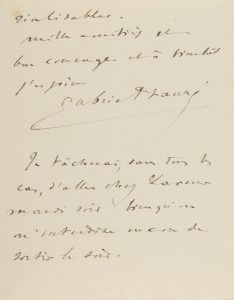 réalisables.
mille amitiés et
bon courage et à bientôt
j'espère
Gabriel Fauré
Je tâcherai, dans tous les
cas, d'aller chez
mardi soir bien qu'on
m'interdise encore de
sortir le soir.